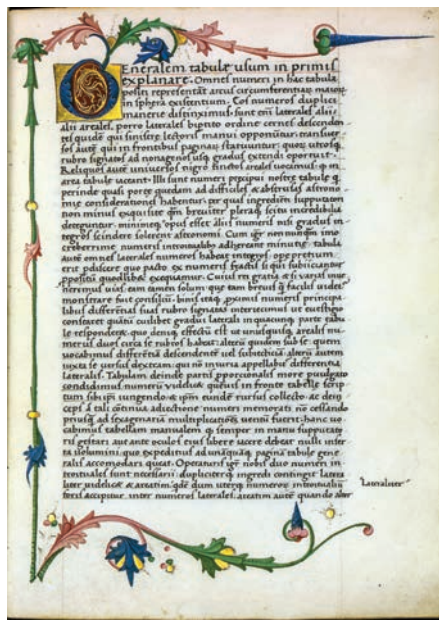 Generalem tabulę usum in primis
explanare. Omnes numeri in hac tabula
positi representāt arcus circumferentiaȝ maioȝ
in sphera existentium. Eos numeros duplici
manerie distinximus. sunt eni laterales alii
alii areales. porro laterales bipito ordine cernes descenden
tes quidē qui sinistrę lectoris manui opponūtur. transuer
sos autē qui in frontibus paginaȝ statuuntur. quos utrosqȝ
rubro signatos ad nonagenos usqȝ gradus extendi oportuit.
Reliquos autē universos nigro tinctos areales vocimus. qͥ in
area tabulę iaceant. Illi sunt numeri pcipui nostrę tabulę q̄
perinde quasi portę quedam ad difficiles & abstrusas astrono
mię considerationes habentur. per quas ingrediēti supputatori
non minus exquisite qm̄ breviter pleraqȝ scitu incredibilia
deteguntur. minimeqȝ opus esset aliis numeris nisi gradus in
tegros scindere solerent astronomi. Cum igr̄ nen nunqͣm imo
creberrime numeris introitualib9 adhereant minutię. tabula
autē omnes laterales numeros habeat integros. ope pretium
erit pdiscere quo pacto ex numeris fractis si qui subiiciantur
ppositū quodlibet exequamur. Cuius rn̄ gratia & si varias inve
nerimus vias. eam tamen solum que tam brevis qͣ facilis videt
monstrare fuit consiliū. binis itaqȝ pximis numeris principa
libus differentiā suā rubro signatas interiecimus ut evestigio
constaret quātū cuilibet gradui laterali in quacunqȝ parte tabu
lę respondere. quo deniqȝ effectū est ut unusquisqȝ arealis nu
merus duos circa se rubros habeat. alterū quidem sub se. quem
vocabimus differētiā descendentē vel subiectiuā. alterū autem
iuxta se versus dextram. qui nō iniuria appellabit differentia
lateralis. Tabulam deinde partis pporcionalis more pvulgato
condidimus. numerū videlicet quēuis in fronte tabellę scrip
tum sibiipi iungendo. & ipm̄ eundē rursus collecto. ac dein
ceps a tali cōtinua adiectione numeri memorati nō cessando
priusqȝ ad sexagenariā multiplicationē ventū fuerit. hanc vo
cabimus tabellam manualem. qͥ semper in manu supputato
ris gestari. aut ante oculos eius libere iacere debeat nulli inser
ta volumini. quo expeditius ad unāquāqȝ paginā tabulę gene
ralis accomodari queat. Operaturis igr̄ nobis duo numeri in
troituales sunt necessarii. dupliciterqȝ ingredi contingit latera
liter videlicet & areatim. qd̄e dum uterqȝ numerus introituali
teris accipitur inter numeros laterales. areatim autē quando alter
Lateraliter